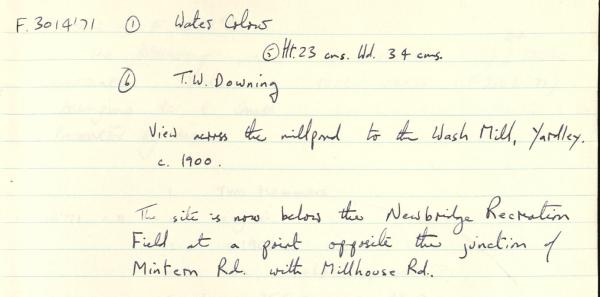 F.3014'71 ① Water Colour
⑤ Ht. 23 cms. Wd. 34 cms.
⑥ T.W. Downing
View across the millpond to the Wash Mill, Yardley.
c. 1900.
The site is now below the Newbridge Recreation
Field at a point opposite the junction of
Mintern Rd. with Millhouse Rd.